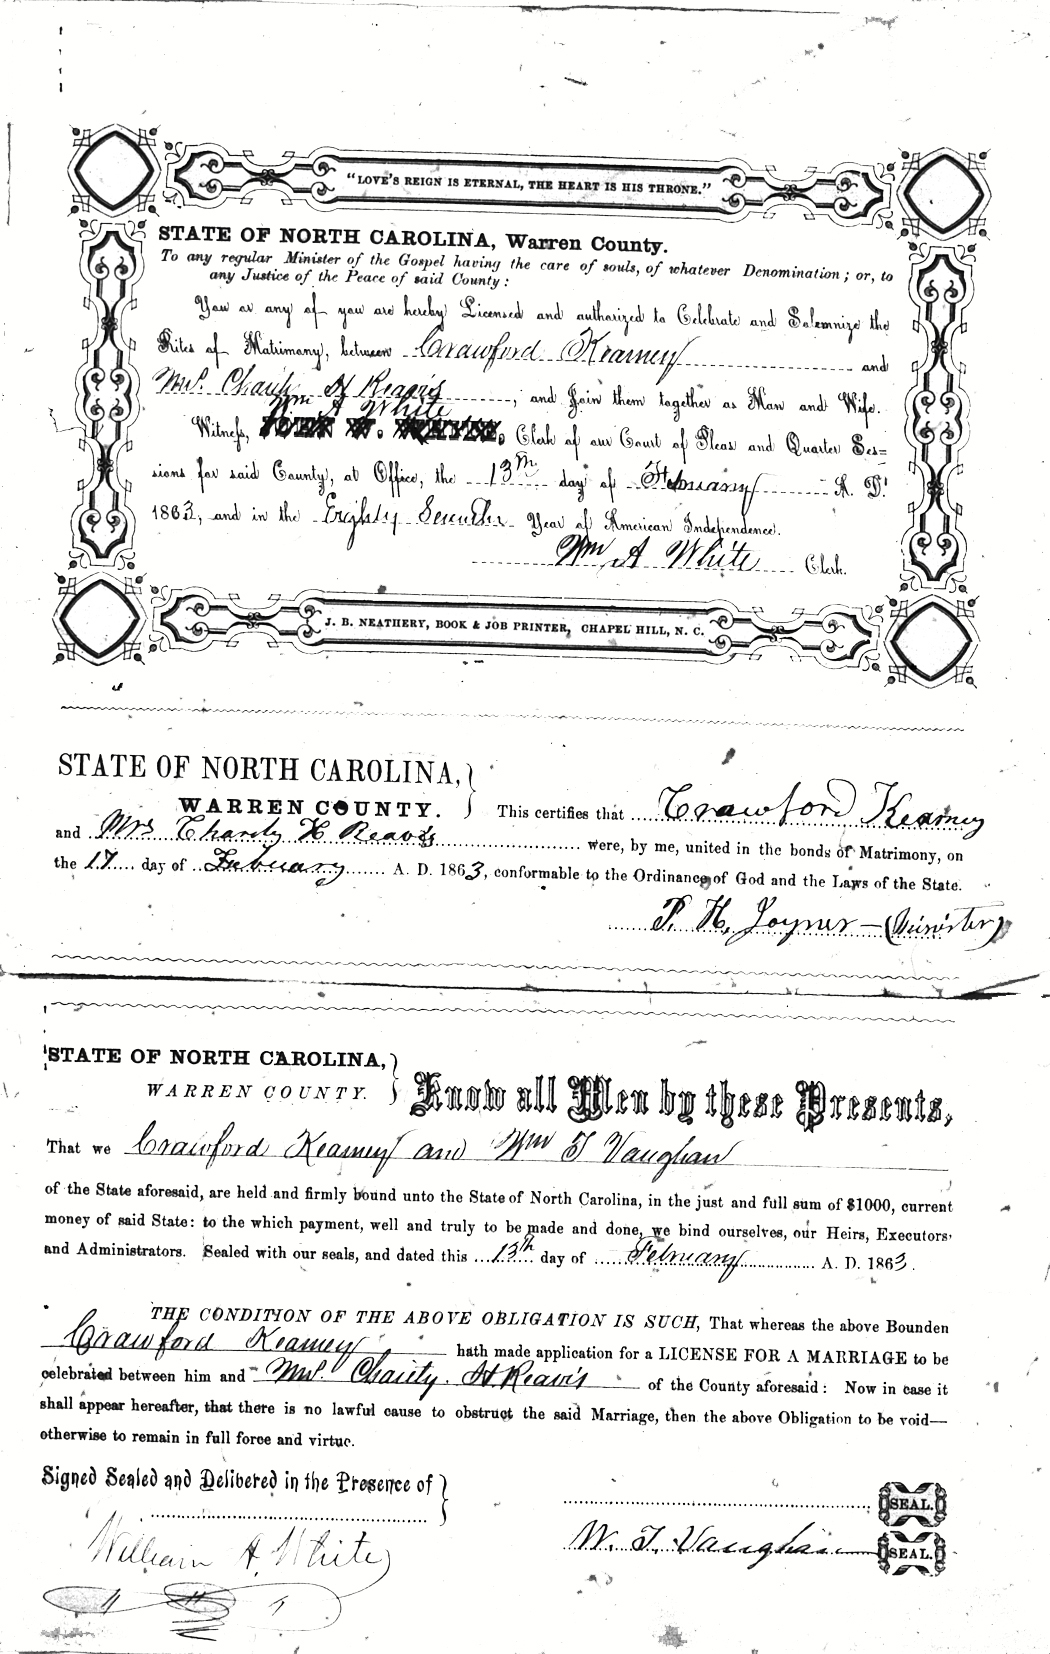 "LOVE'S REIGN IS ETERNAL, THE HEART IS HIS THRONE."
STATE OF NORTH CAROLINA, Warren County.
To any regular Minister of the Gospel having the care of souls, of whatever Denomination; or, to
any Justice of the Peace of said County:
You or any of you are hereby Licensed and authorized to Celebrate and Solemnize the
Rites of Matrimony, between Crawford Kearney and
Mrs. Charity H Reavis, and Join them together as Man and Wife.
Wm A White
Witness, Clerk of our Court of Pleas and Quarter Ses=
sions for said County, at Office, the 13th day of February A. D.
1863, and in the Eighty Seventh Year of American Independence.
Wm A White Clerk.
J. B. NEATHERY, BOOK & JOB PRINTER, CHAPEL HILL, N. C.
STATE OF NORTH CAROLINA,
WARREN COUNTY. This certifies that Crawford Kearney
and Mrs Charity H Reavis were, by me, united in the bonds of Matrimony, on
the 17 day of February A. D. 1863, conformable to the Ordinance of God and the Laws of the State.
P. H. Joyner - (Minister)
STATE OF NORTH CAROLINA,
WARREN COUNTY. Know all Men by these Presents,
That we Crawford Kearney and Wm T Vaughan
of the State aforesaid, are held and firmly bound unto the State of North Carolina, in the just and full sum of $1000, current
money of said State: to the which payment, well and truly to be made and done, we bind ourselves, our Heirs, Executors
and Administrators. Sealed with our seals, and dated this 13th day of February A. D. 1863.
THE CONDITION OF THE ABOVE OBLIGATION IS SUCH, That whereas the above Bounden
Crawford Kearney hath made application for a LICENSE FOR A MARRIAGE to be
celebrated between him and Mrs. Charity H Reavis of the County aforesaid: Now in case it
shall appear hereafter, that there is no lawful cause to obstruct the said Marriage, then the above Obligation to be void—
otherwise to remain in full force and virtue.
Signed Sealed and Delibered in the Presence of
SEAL.
William A. White
W. T. Vaughan SEAL.